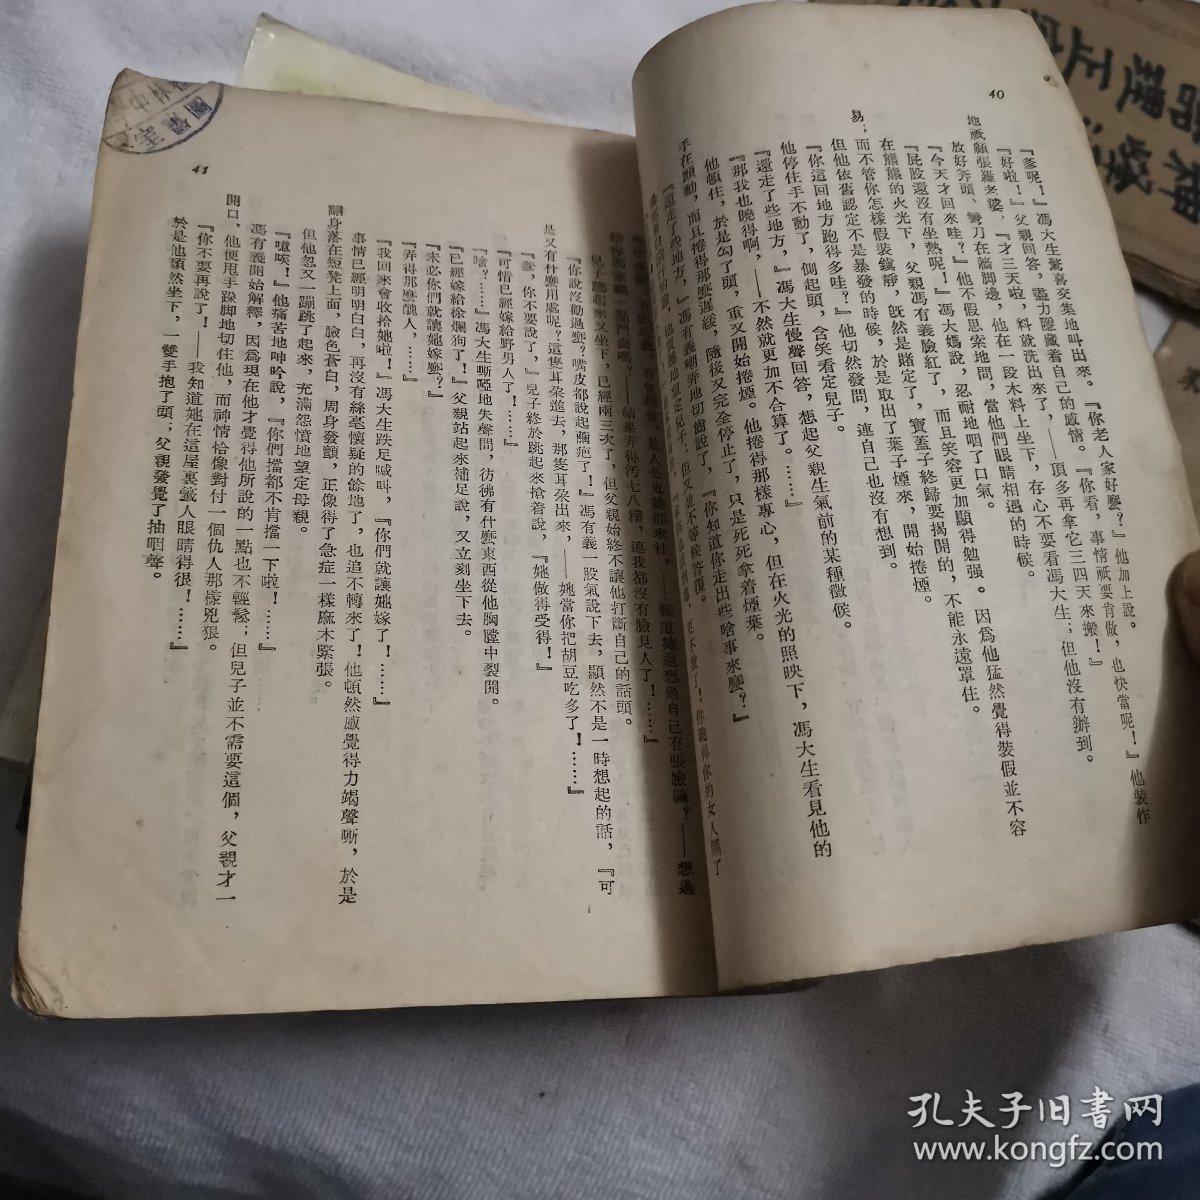 40
『爹呢！』馮大生驚喜交集地叫出來。『你老人家好麼？』他加上說。
『好啦！』父親回答，盡力隱藏着自己的感情。『你看，事情祇要肯做，也快當呢！』他裝作
地祇顧張羅老婆，『才三天啦，料就洗出來了，——頂多再拿它三四天來搬！』
放好斧頭、彎刀在牆脚邊，他在一段木料上坐下，存心不要看馮大生；但他沒有辦到。
『今天才回來哇？』他不假思索地問，當他們眼睛相遇的時候。
『屁股還沒有坐熱呢，』馮大媽說，忍耐地咽了口氣。
在熊熊的火光下，父親馮有義臉紅了，而且笑容更加顯得勉强。因爲他猛然覺得裝假並不容
易；而不管你怎樣假裝鎮靜，旣然是賭定了，寶蓋子終歸要揭開的，不能永遠罩住。
但他依舊認定不是暴發的時候，於是取出了葉子煙來，開始捲煙。
『你這回地方跑得多哇？』他切然發問，連自己也沒有想到。
他停住手不動了，側起頭，含笑看定兒子。
『還走了些地方，』馮大生慢聲回答，想起父親生氣前的某種徵候。
『那我也曉得啊，——不然就更加不合算了。……』
他頓住，於是勾了頭，重又開始捲煙。他捲得那樣專心，但在火光的照映下，馮大生看見他的
手在顫動，而且捲得那麼遲緩，隨後又完全停止了，只是死死拿着煙葉。
『還走了些地方，』馮有義嘲弄地切齒說了，『你知道你走出些啥事來麼？』
41
——結果弄得汚七八糟，連我都沒有臉見人了！……』
兒子跳起來又坐下，已經兩三次了，但父親始終不讓他打斷自己的話頭。
『你說沒勸過麼？嘴皮都說起繭疤了！』馮有義一股氣說下去，顯然不是一時想起的話，『可
是又有什麼用處呢？這隻耳朶進去，那隻耳朶出來，——她當你把胡豆吃多了！……』
『爹，你不要說了，』兒子終於跳起來搶着說，『她做得受得！』
『可惜已經嫁給野男人了！……』
『啥？……』馮大生嘶啞地失聲問，彷彿有什麼東西從他胸膛中裂開。
『已經嫁給徐爛狗了！』父親站起來補足說，又立刻坐下去。
『未必你們就讓她嫁麼？』
『弄得那麼醜人，……』
『我回來會收拾她啦！』馮大生跌足喊叫，『你們就讓她嫁了！……』
事情已經明明白白，再沒有絲毫懷疑的餘地了，也追不轉來了！他頓然感覺得力竭聲嘶，於是
翻身落在短凳上面，臉色蒼白，周身發顫，正像得了急症一樣麻木緊張。
但他忽又一蹦跳了起來，充滿怨憤地望定母親。
『噫唉！』他痛苦地呻吟說，『你們擋都不肯擋一下啦！……』
馮有義開始解釋，因爲現在他才覺得他所說的一點也不輕鬆；但兒子並不需要這個，父親才一
開口，他便甩手跺脚地切住他，而神情恰像對付一個仇人那樣兇狠。
『你不要再說了！——我知道她在這屋裏戳人眼睛得很！……』
於是他頹然坐下，一雙手抱了頭；父親發覺了抽咽聲。
孔夫子旧書网
www.kongfz.com